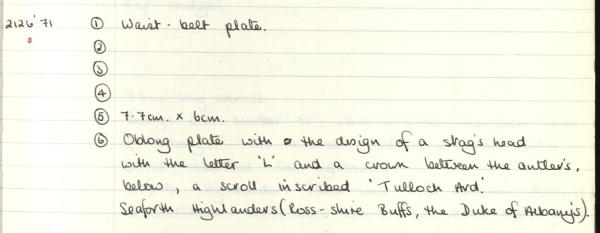 2126'71 ① Waist-belt plate.
②
③
④
⑤ 7.7cm. x 6cm.
⑥ Oblong plate with the design of a stag's head
with the letter 'L' and a crown between the antlers,
below, a scroll inscribed 'Tulloch Ard.'
Seaforth Highlanders (Ross-shire Buffs, the Duke of Albany's).